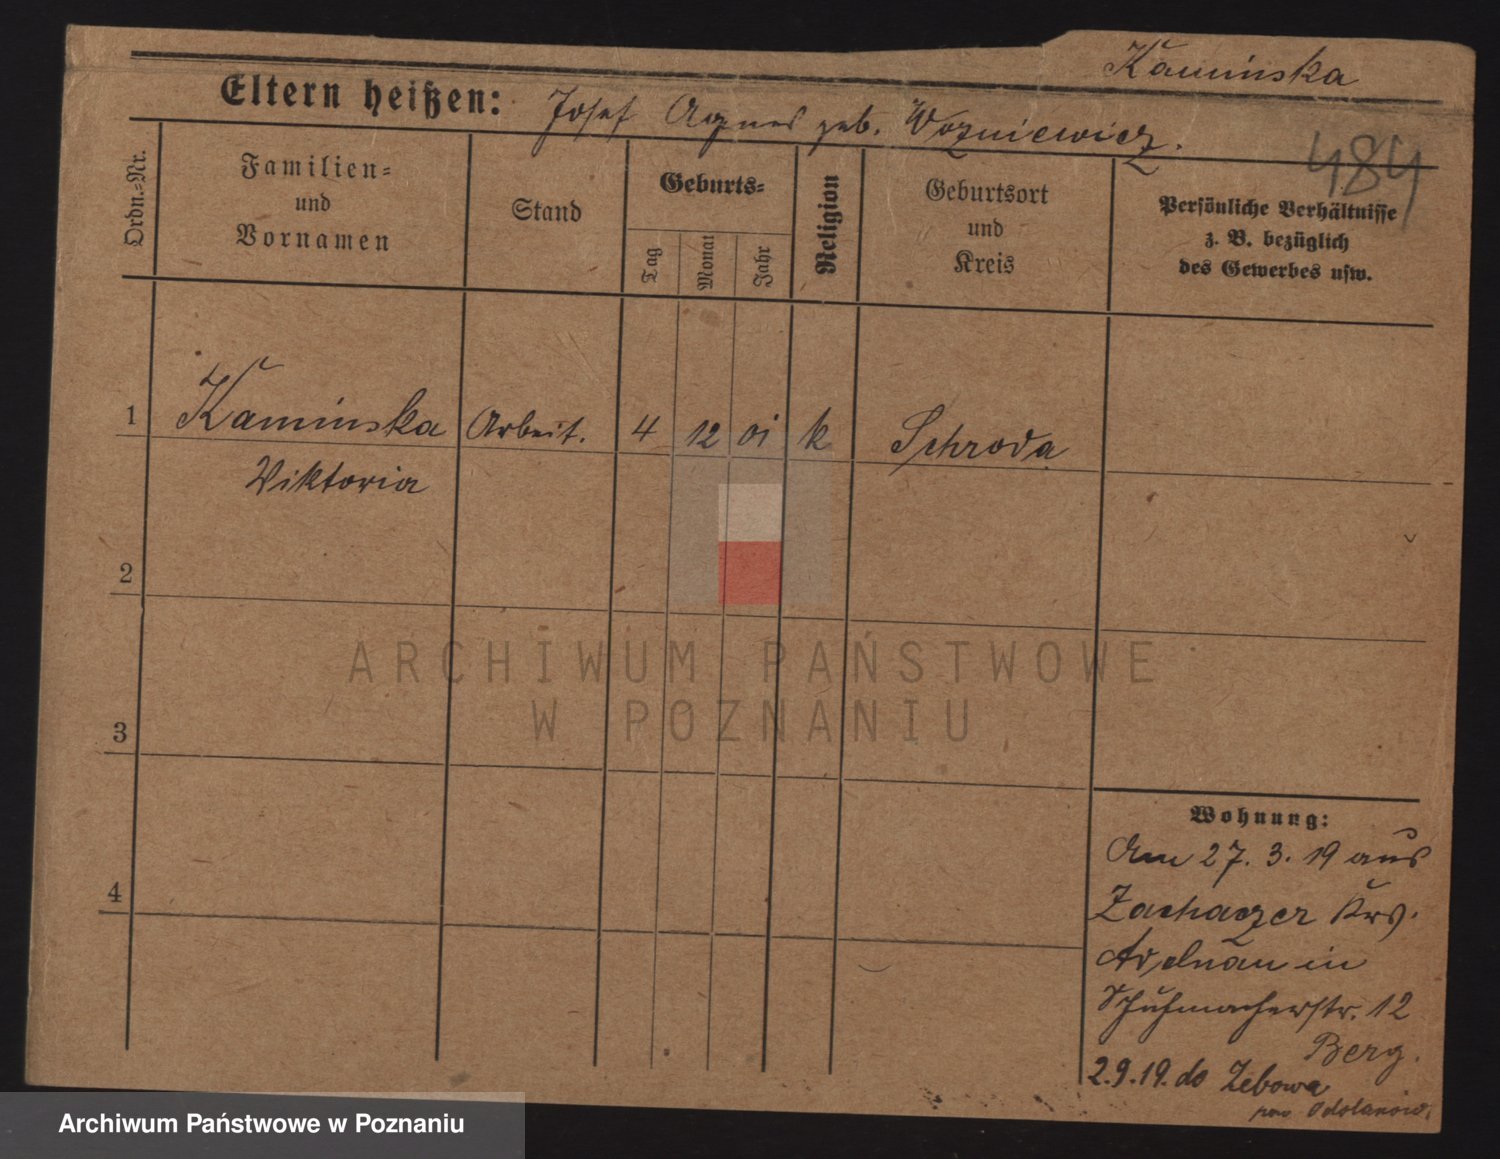 Kaminska
Eltern heißen: Josef Agnes geb. Wozniewicz.
484
Ordn.-Nr.
Familien-
und
Vornamen
Stand
Geburts-
Tag
Monat
Jahr
Religion
Geburtsort
und
Kreis
Persönliche Verhältnisse
z. B. bezüglich
des Gewerbes usw.
1 Kaminska Arbeit. 4 12 01 k Schroda
Viktoria
2
ARCHIWUM PAŃSTWOWE
W POZNANIU
3
4
Wohnung:
Am 27. 3. 19 aus
Zacharzer Krs.
Adelnau in
Schuhmacherstr. 12
Berg.
2.9.19. do Zebowa
pow Odolanów.
Archiwum Państwowe w Poznaniu